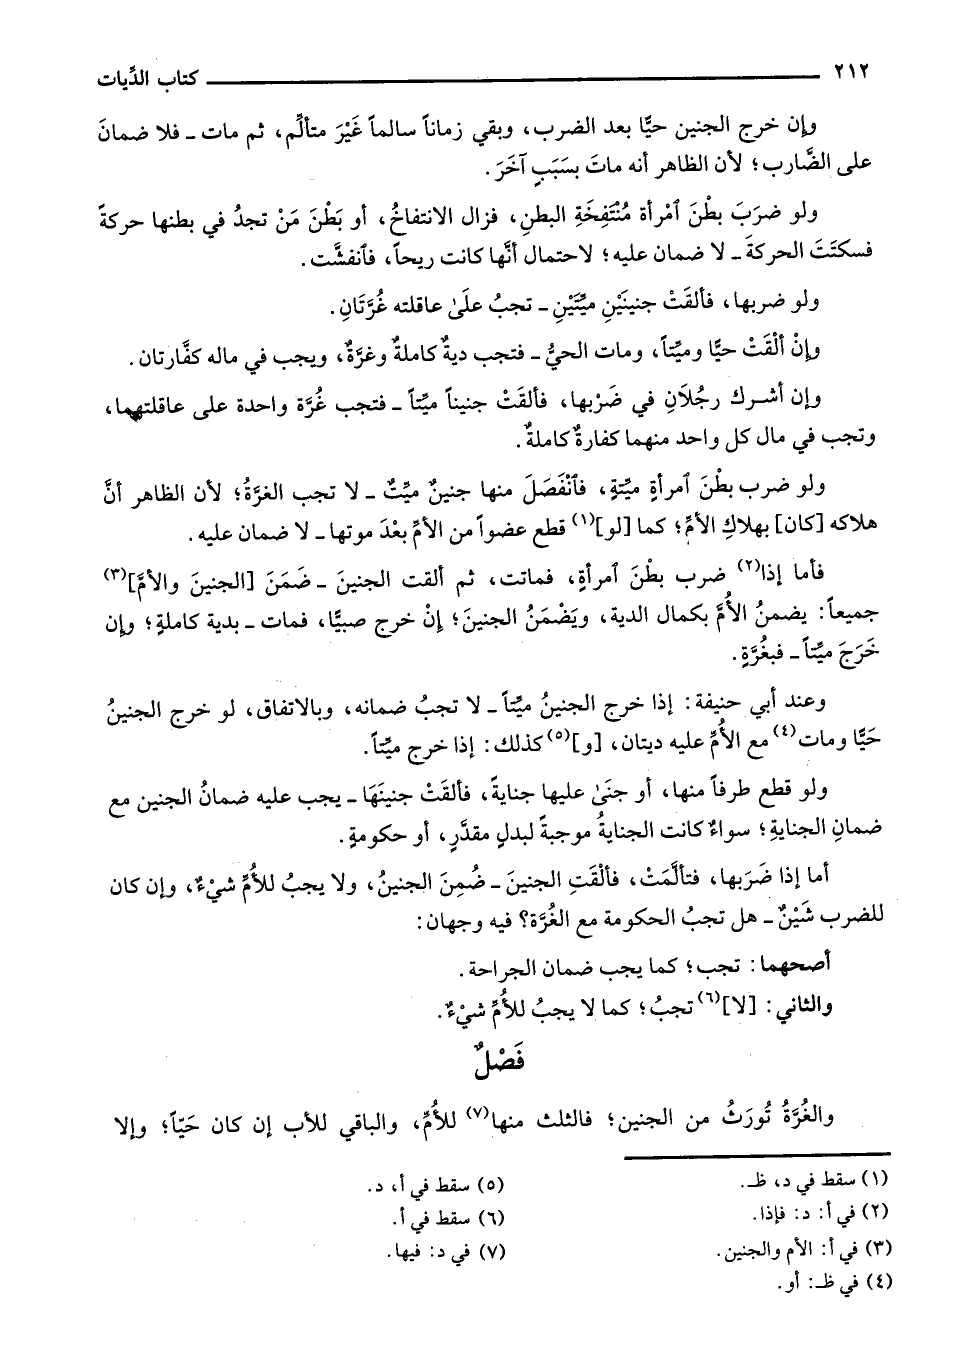 ٢١٢ كتاب الدِّيات
وإن خرج الجنين حيًّا بعد الضرب، وبقي زماناً سالماً غَيْرَ متألِّم، ثم مات ـ فلا ضمانَ
على الضَّارب؛ لأن الظاهر أنه ماتَ بسَبَبٍ آخَرَ.
ولو ضرَبَ بطْنَ ٱمْرأة مُنْتَفِخَةِ البطنِ، فزال الانتفاخُ، أو بَطْنَ مَنْ تجدُ في بطنها حركةً
فسكتَتَ الحركةَ ـ لا ضمان عليه؛ لاحتمال أنَّها كانت ريحاً، فٱنفشَّت.
ولو ضربها، فألقَتْ جنينَيْنِ ميِّتَيْنِ ـ تجبُ علَىٰ عاقلته غُرَّتَانِ.
وإنْ ألْقَتْ حيًّا وميِّتاً، ومات الحيُّ ـ فتجب ديةٌ كاملةٌ وغرَّةٌ، ويجب في ماله كفَّارتان.
وإن أشرك رجُلَانِ في ضَرْبها، فألقَتْ جنيناً ميِّتاً ـ فتجب غُرَّة واحدة على عاقلتهما،
وتجب في مال كل واحد منهما كفارةٌ كاملةٌ.
ولو ضرب بطْنَ ٱمرأةٍ ميِّتةٍ، فٱنْفَصَلَ منها جنينٌ ميِّتٌ ـ لا تجب الغرَّةُ؛ لأن الظاهر أنَّ
هلاكه [كان] بهلاكِ الأمِّ؛ كما [لو](١) قطع عضواً من الأمِّ بعْدَ موتها ـ لا ضمان عليه.
فأما إذا(٢) ضرب بطْنَ ٱمرأةٍ، فماتت، ثم ألقت الجنينَ ـ ضَمَنَ [الجنينَ والأمَّ](٣)
جميعاً: يضمنُ الأُمَّ بكمال الدية، ويَضْمَنُ الجنينَ؛ إنْ خرج صبيًّا، فمات ـ بدية كاملةٍ؛ وإن
خَرَجَ ميِّتاً ـ فبغُرَّةٍ.
وعند أبي حنيفة: إذا خرج الجنينُ ميِّتاً ـ لا تجبُ ضمانه، وبالاتفاق، لو خرج الجنينُ
حَيًّا ومات(٤) مع الأُمِّ عليه ديتان، [و](٥) كذلك: إذا خرج ميِّتاً.
ولو قطع طرفاً منها، أو جنَىٰ عليها جنايةً، فألقَتْ جنينَهَا ـ يجب عليه ضمانُ الجنين مع
ضمانِ الجنايةِ؛ سواءٌ كانت الجنايةُ موجبةً لبدلٍ مقدَّرٍ، أو حكومةٍ.
أما إذا ضَرَبها، فتألَّمَتْ، فألْقَتِ الجنينَ ـ ضُمِنَ الجنينُ، ولا يجبُ للأُمِّ شيْءٌ، وإن كان
للضرب شَيْنٌ ـ هل تجبُ الحكومة مع الغُرَّة؟ فيه وجهان:
أصحهما: تجب؛ كما يجب ضمان الجراحة.
والثاني: [لا](٦) تجبُ؛ كما لا يجبُ للأُمِّ شيْءٌ.
فَصْلٌ
والغُرَّةُ تُورَثُ من الجنين؛ فالثلث منها(٧) للأُمِّ، والباقي للأب إن كان حَيّاً؛ وإلا
(١) سقط في د، ظـ.
(٢) في أ: د: فإذا.
(٣) في أ: الأم والجنين.
(٤) في ظـ: أو.
(٥) سقط في أ، د.
(٦) سقط في أ.
(٧) في د: فيها.